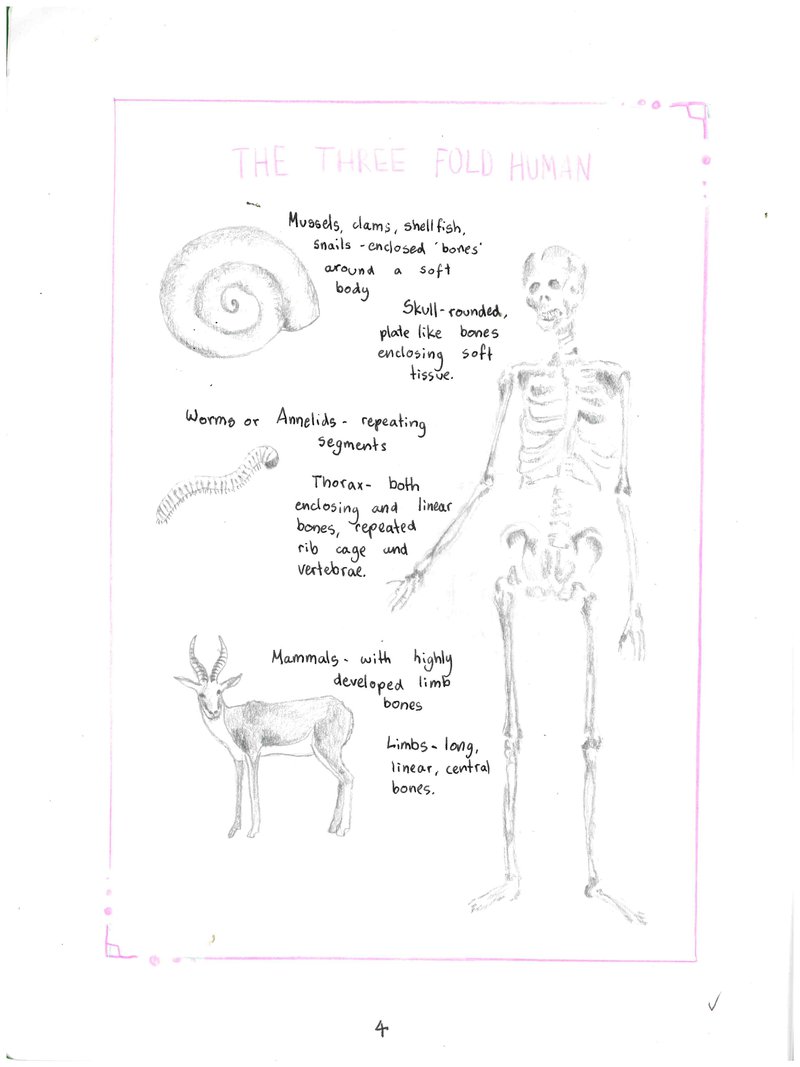 THE THREE FOLD HUMAN
Mussels, clams, shellfish,
snails - enclosed 'bones'
around a soft
body
Skull - rounded,
plate like bones
enclosing soft
tissue.
Worms or Annelids - repeating
segments
Thorax - both
enclosing and linear
bones, repeated
rib cage and
vertebrae.
Mammals - with highly
developed limb
bones
Limbs - long,
linear, central
bones.
4